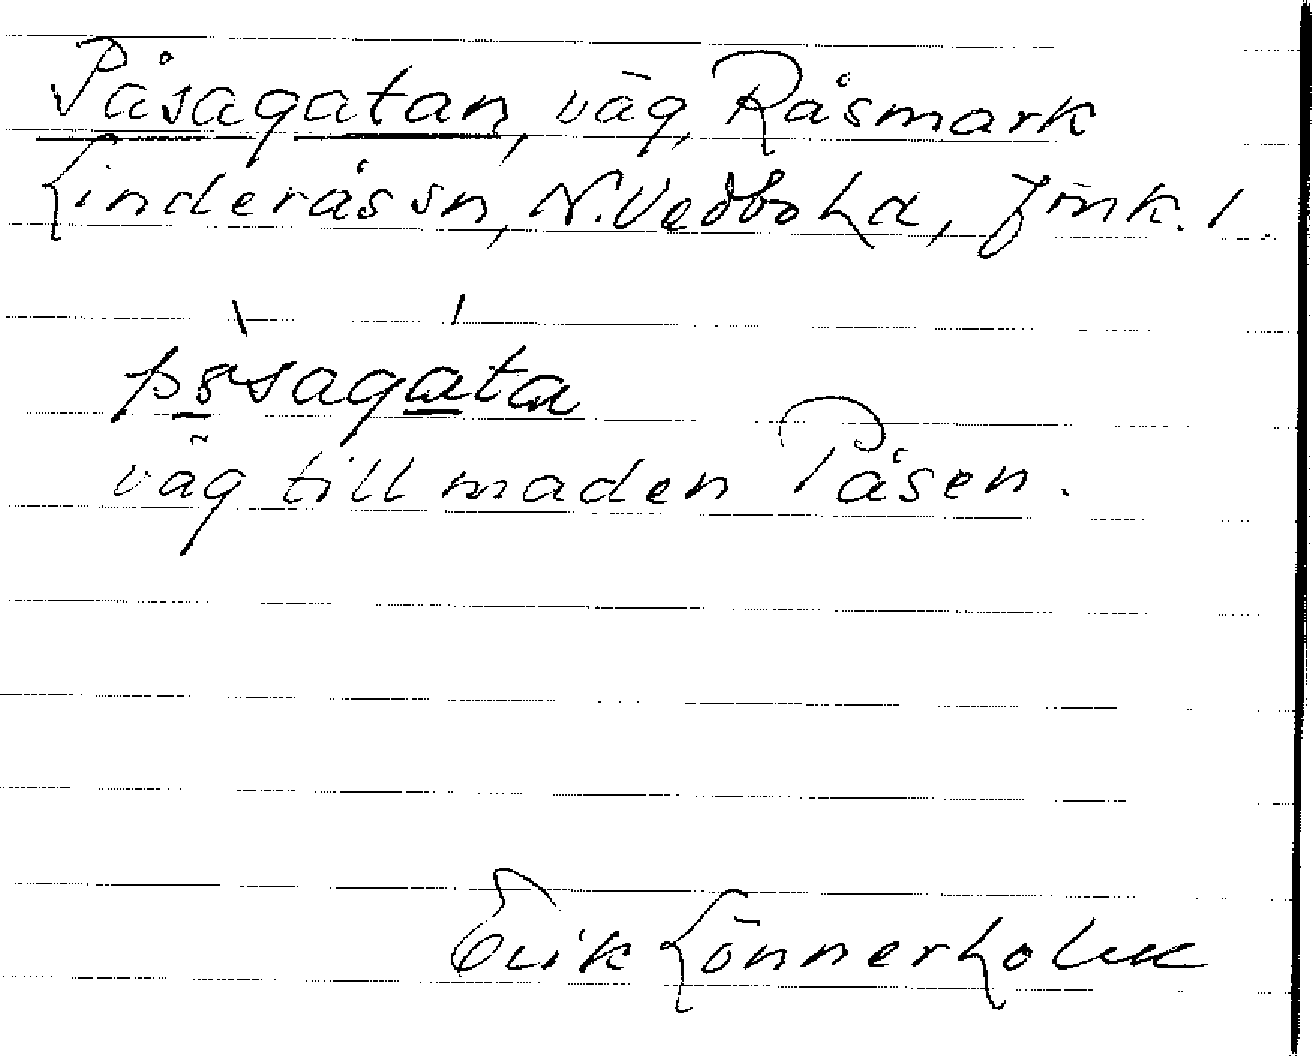 Påsagatan, väg, Råsmark
Linderås sn, N. Vedbo hd, Jönk. l.
väg till maden Påsen.
Erik Lönnerholm